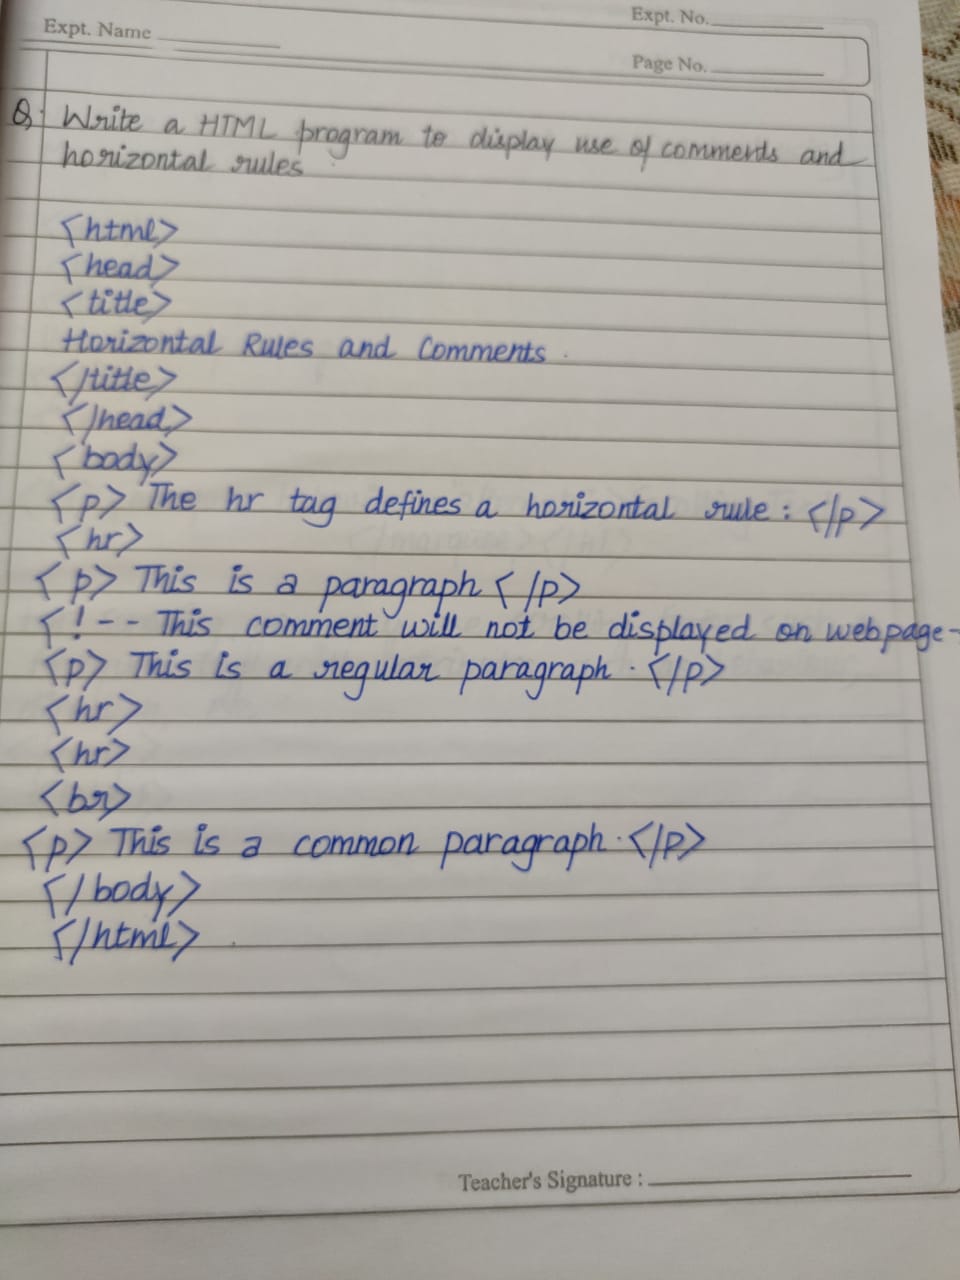 Expt. No.
Expt. Name
Page No.
Q. Write a HTML program to display use of comments and
horizontal rules
<html>
<head>
<title>
Horizontal Rules and Comments.
</title>
</head>
<body>
<p> The hr tag defines a horizontal rule : </p>
<hr>
<p> This is a paragraph </p>
<!-- This comment will not be displayed on webpage-
<p> This is a regular paragraph. </p>
<hr>
<hr>
<br>
<p> This is a common paragraph. </p>
</body>
</html>.
Teacher's Signature :